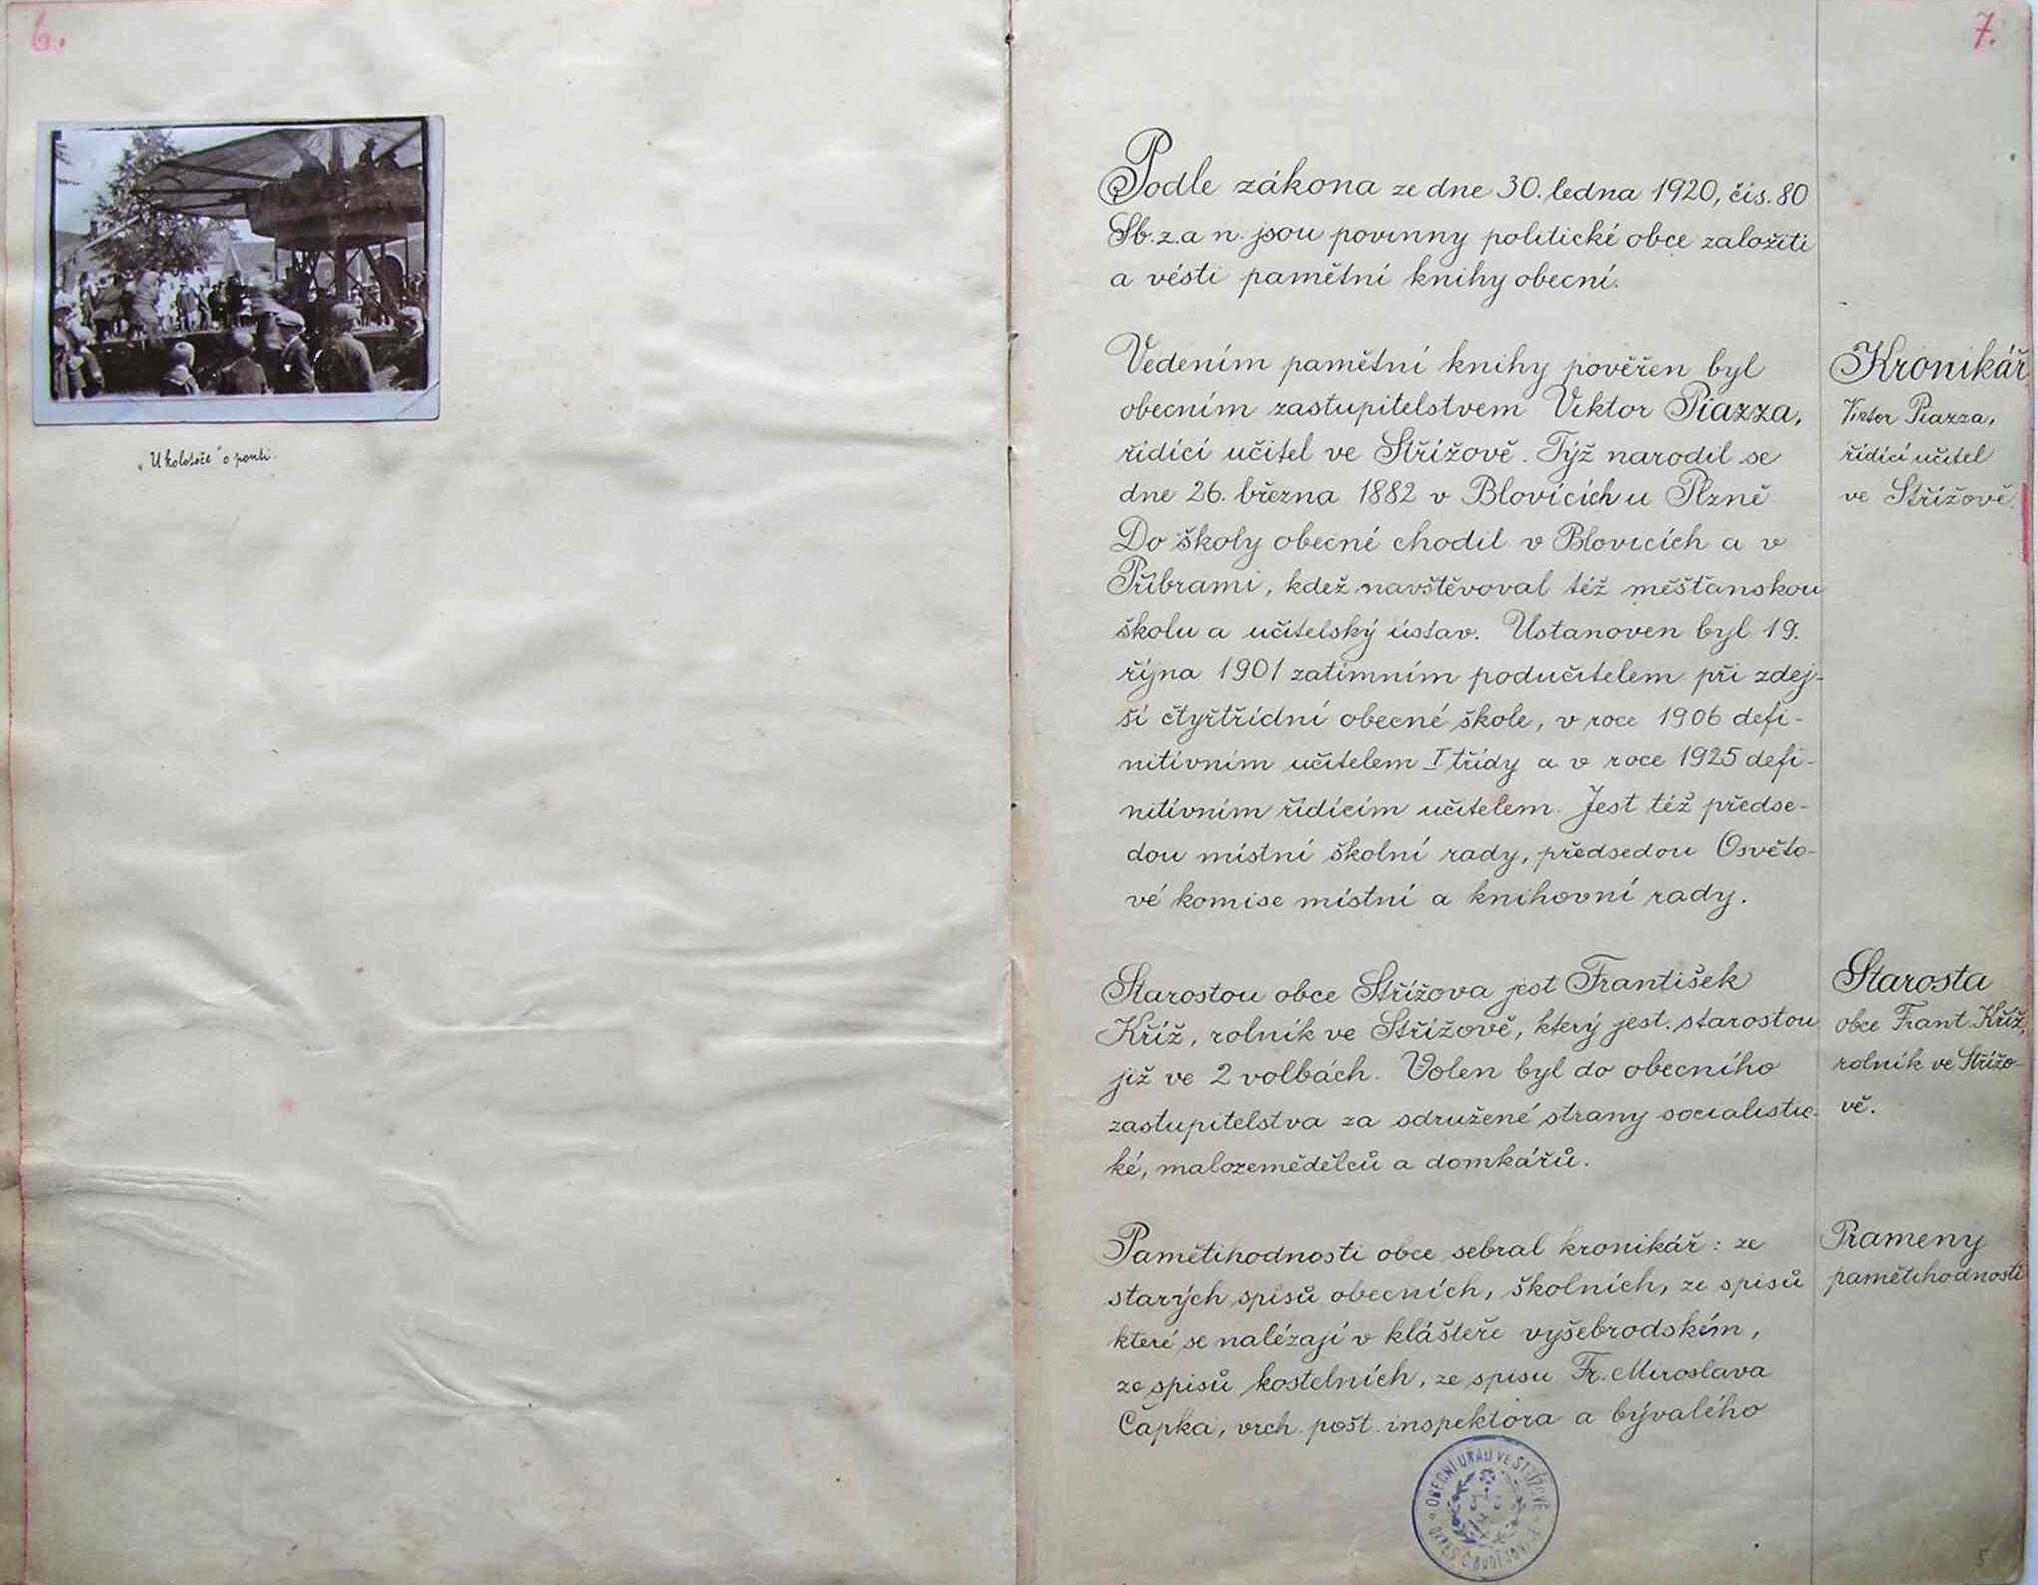 6.
„U kolotoče" o pouti.
7.
Podle zákona ze dne 30. ledna 1920, čís. 80
Sb. z. a n. jsou povinny politické obce založiti
a vésti pamětní knihy obecní.
Vedením pamětní knihy pověřen byl
obecním zastupitelstvem Viktor Piazza,
řídící učitel ve Střížově. Týž narodil se
dne 26. března 1882 v Blovicích u Plzně
Do školy obecné chodil v Blovicích a v
Příbrami, kdež navštěvoval též měšťanskou
školu a učitelský ústav. Ustanoven byl 19.
října 1901 zatímním podučitelem při zdej-
ší čtyřtřídní obecné škole, v roce 1906 defi-
nitivním učitelem I třídy a v roce 1925 defi-
nitivním řídícím učitelem. Jest též předse-
dou místní školní rady, předsedou Osvěto-
vé komise místní a knihovní rady.
Kronikář
Viktor Piazza,
řídící učitel
ve Střížově.
Starostou obce Střížova jest František
Kříž, rolník ve Střížově, který jest starostou
již ve 2 volbách. Volen byl do obecního
zastupitelstva za sdružené strany socialistic-
ké, malozemědělců a domkářů.
Starosta
obce Frant. Kříž,
rolník ve Střížo-
vě.
Pamětihodnosti obce sebral kronikář: ze
starých spisů obecních, školních, ze spisů
které se nalézají v klášteře vyšebrodském,
ze spisů kostelních, ze spisu Fr. Miroslava
Čapka, vrch. pošt. inspektora a bývalého
Prameny
pamětihodností
OBECNÍ ÚŘAD VE STŘÍŽOVĚ
OKRES Č. BUDĚJOVICE
5